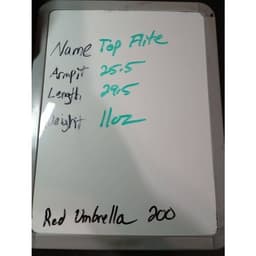 Name Top Flite
Armpit 25.5
Length 29.5
Weight 11oz
Red Umbrella 200